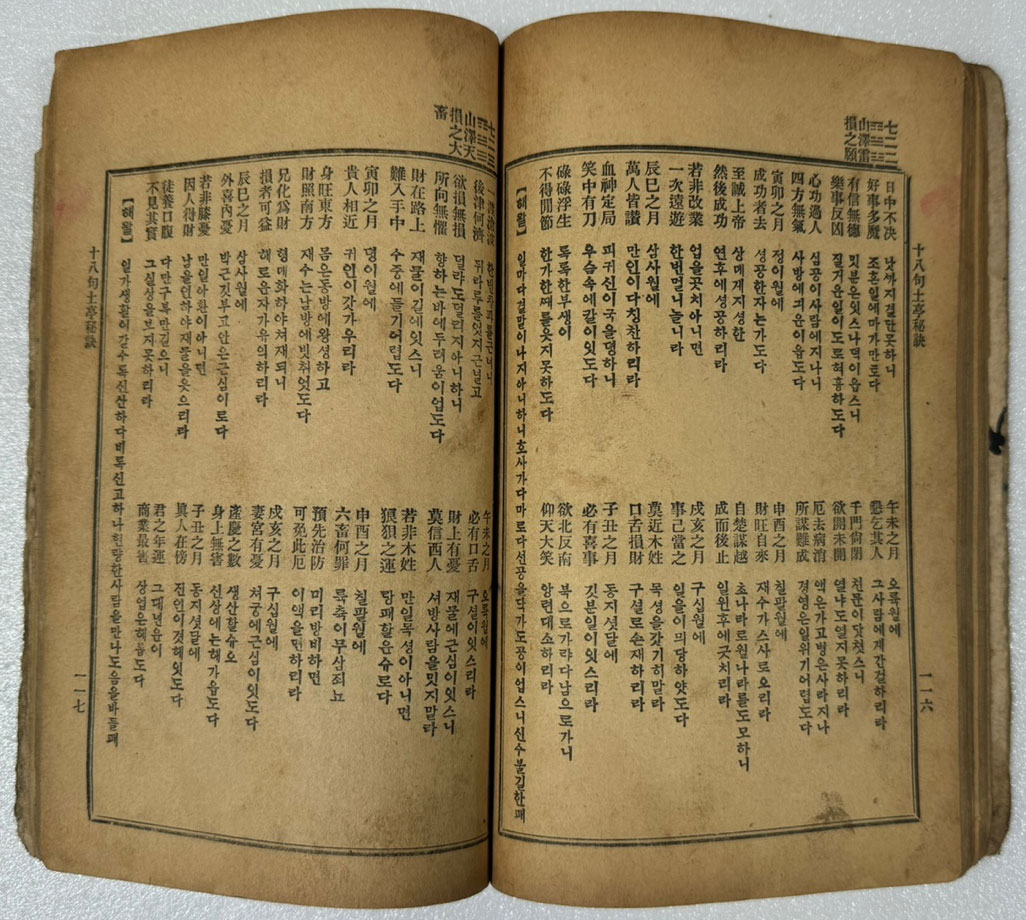 七二二
山澤雷
損之頤
十八句土亭秘訣
日中不決 낫까지결단못하니
好事多魔 조흔일에마가만토다
有信無德 밋븐은잇스나덕이읍스니
樂事反凶 질거운일이도로혀흉하도다
心功過人 심공이사람에지나니
四方無氣 사방에긔운이읍도다
寅卯之月 정이월에
成功者去 성공한자는가도다
至誠上帝 상뎨게지셩한
然後成功 연후에셩공하리라
若非改業 업을곳치아니면
一次遠遊 한번멀니놀니라
辰巳之月 삼사월에
萬人皆讃 만인이다칭찬하리라
血神定局 피귀신이국을뎡하니
笑中有刀 우슴속에칼이잇도다
碌碌浮生 록록한부생이
不得閒節 한가한때를웃지못하도다
午未之月 오륙월에
懇乞其人 그사람에게간걸하리라
千門尙閉 천문이닷첫스니
欲開未開 열냐도열지못하리라
厄去病消 액은가고병은사라지나
所謀難成 경영은일위기어렵도다
申酉之月 칠팔월에
財旺自來 재수가스사로오리라
自楚謀越 초나라로월나라를도모하니
成而後止 일윈후에긋치리라
戌亥之月 구십월에
事己當之 일을이믜당하얏도다
莫近木姓 목셩을갓가히말라
口舌損財 구셜로손재하리라
子丑之月 동지섯달에
必有喜事 깃븐일이잇스리라
欲北反南 북으로가랴다남으로가니
仰天大笑 앙련대소하리라
【해왈】 일마다결말이나지아니하니호사가다마로다선공을닥가도공이업스니신수불길한패
一一六
七二三
山澤天
損之大
畜
十八句土亭秘訣
後津何濟 뒤라루를엇지근널고
欲損無損 덜랴도덜리지아니하니
所向無懼 향하는바에두려움이업도다
財在路上 재물이길에잇스니
難入手中 수중에들기어렵도다
寅卯之月 뎡이월에
貴人相近 귀인이갓가우리라
身旺東方 몸은동방에왕셩하고
財照南方 재수는남방에빗취엇도다
兄化爲財 형매화하야재되니
損者可益 해로운자가유의하리라
辰巳之月 삼사월에
外喜內憂 박근깃부고안은근심이로다
若非膝憂 만일아환이아니면
因人得財 남을인하야재물을읏으리라
徒養口腹 다만구복만길으니
不見其實 그실상을보지못하리라
午未之月 오륙월에
必有口舌 구셜이잇스리라
財上有憂 재물에근심이잇스니
莫信西人 셔방사람을밋지말라
若非木姓 만일목셩이아니면
狼狽之運 랑패할운슈로다
申酉之月 칠팔월에
六畜何罪 륙축이무삼죄뇨
預先治防 미리방비하면
可免此厄 이액을면하리라
戌亥之月 구십월에
妻宮有憂 처궁에근심이잇도다
產慶之數 생산할슈오
身上無害 신상에는해가읍도다
子丑之月 동지섯달에
眞人在傍 진인이겻헤잇도다
君之年運 그대년운이
商業最害 상업은해롭도다
【해왈】 일가생활이갈수록신산하다비록신고하나헌량한사람을만나도음을바들패
一一七